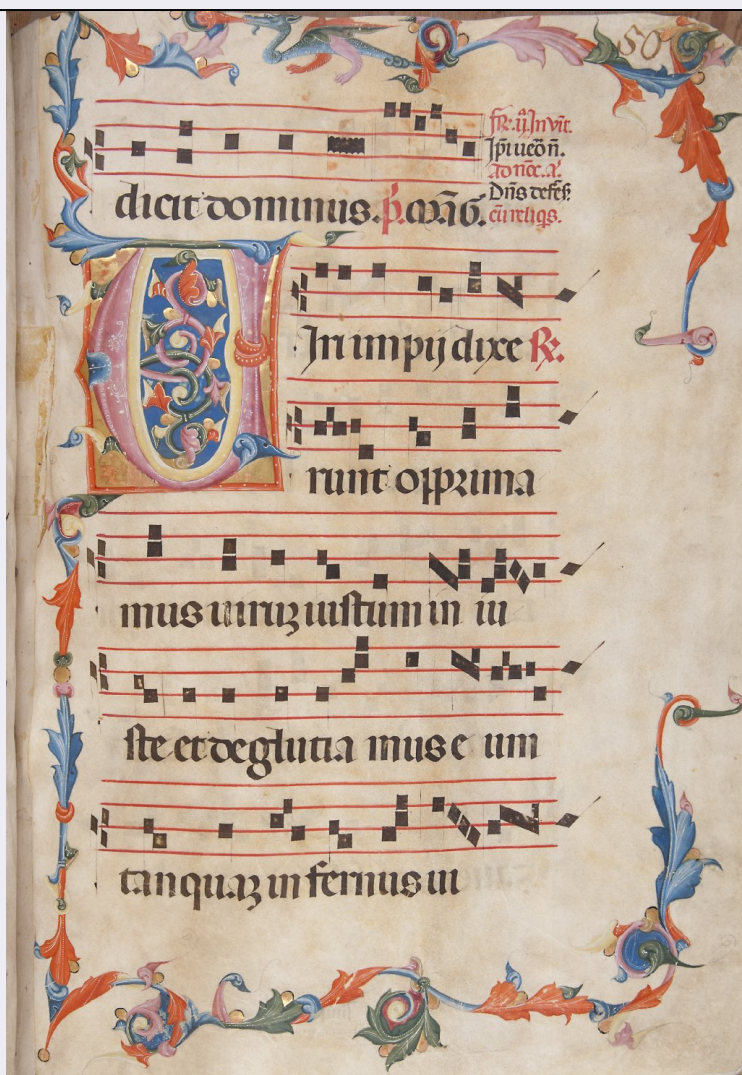 50
dicit dominus. p̄. mag̃.
fr̃. ij. Inuit̃.
Ip̃i ueõ ñ.
ad noc̃. a.
Dñs defeñ.
cũ reliqs.
Viri impij dixe R.
runt opprima
mus uiruz iustum in iu
ste et deglutia mus e um
tanquaz in fernus ui